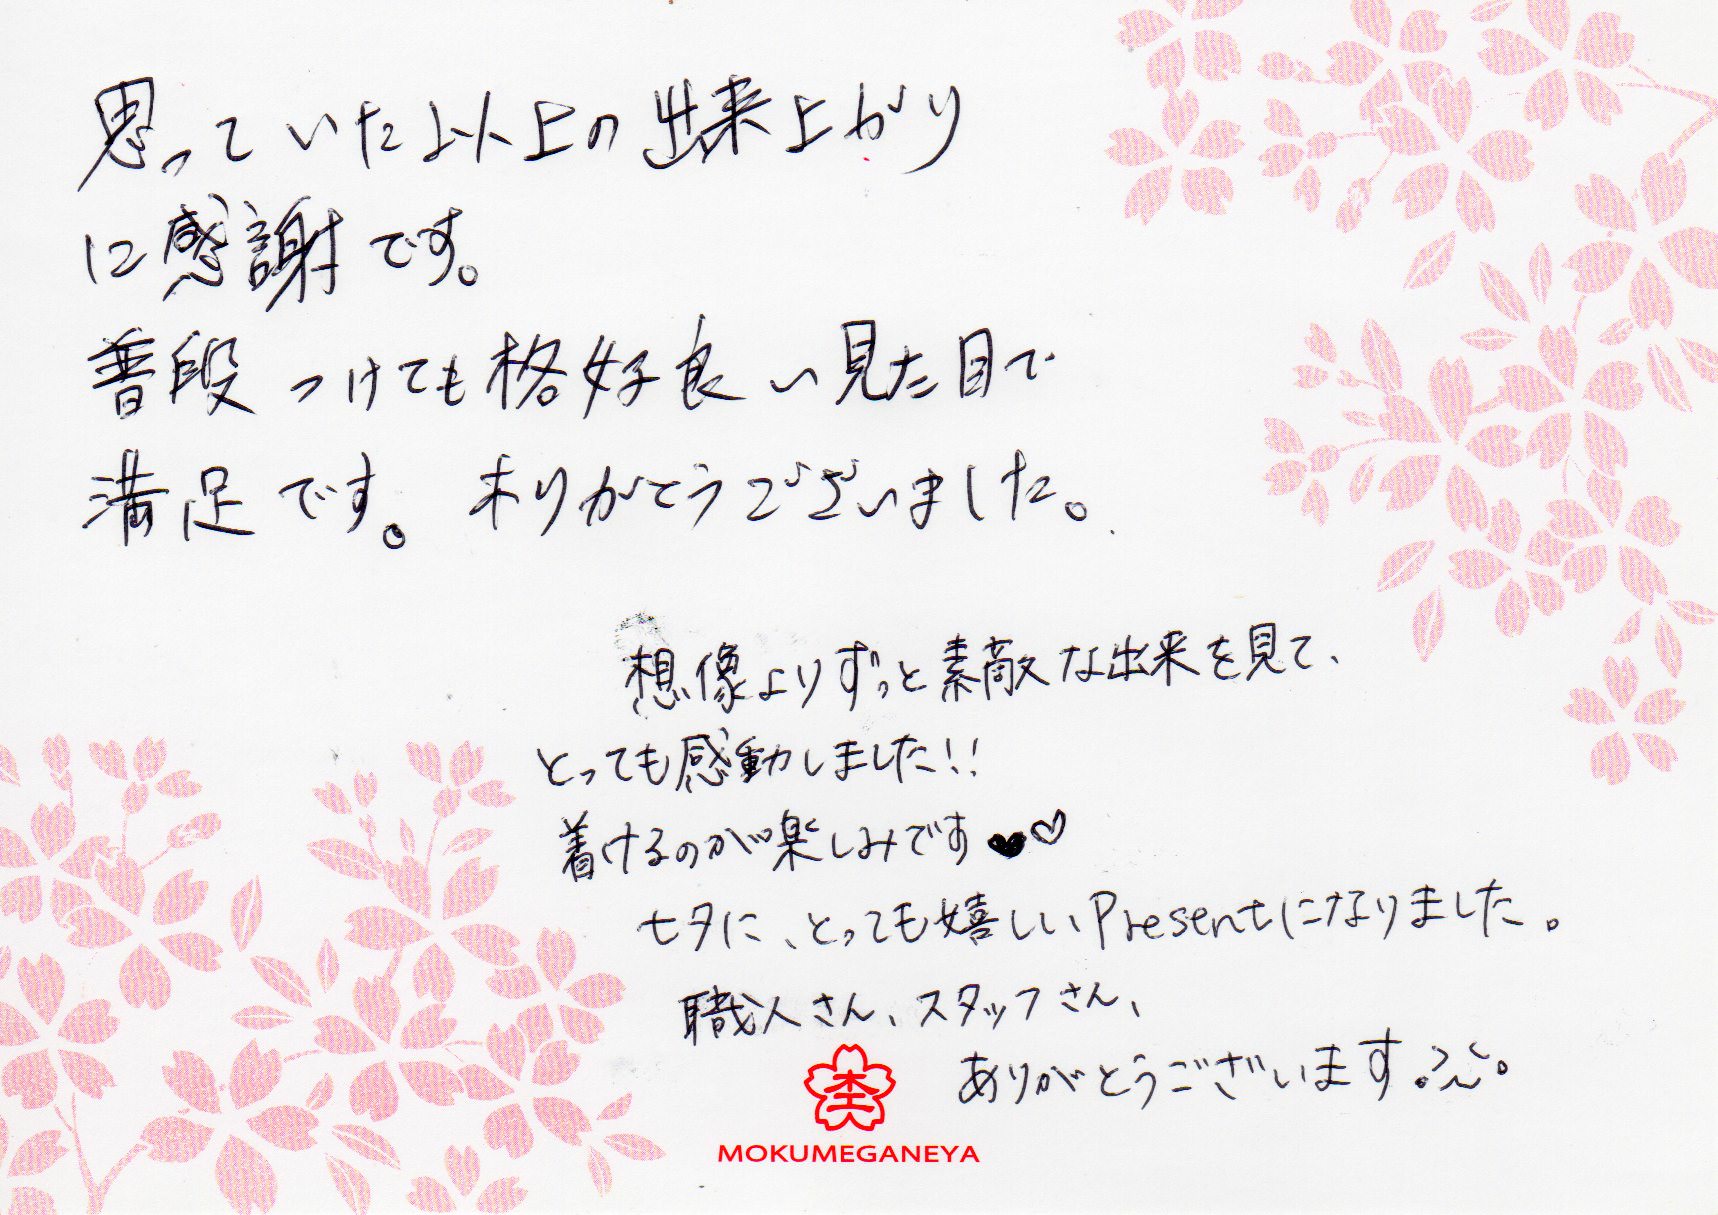 思っていた以上の出来上がり
に感謝です。
普段つけても格好良い見た目で
満足です。ありがとうございました。
想像よりずっと素敵な出来を見て、
とっても感動しました!!
着けるのが楽しみです♥♡
七夕に、とっても嬉しいPresentになりました。
職人さん、スタッフさん、
ありがとうございます。
MOKUMEGANEYA